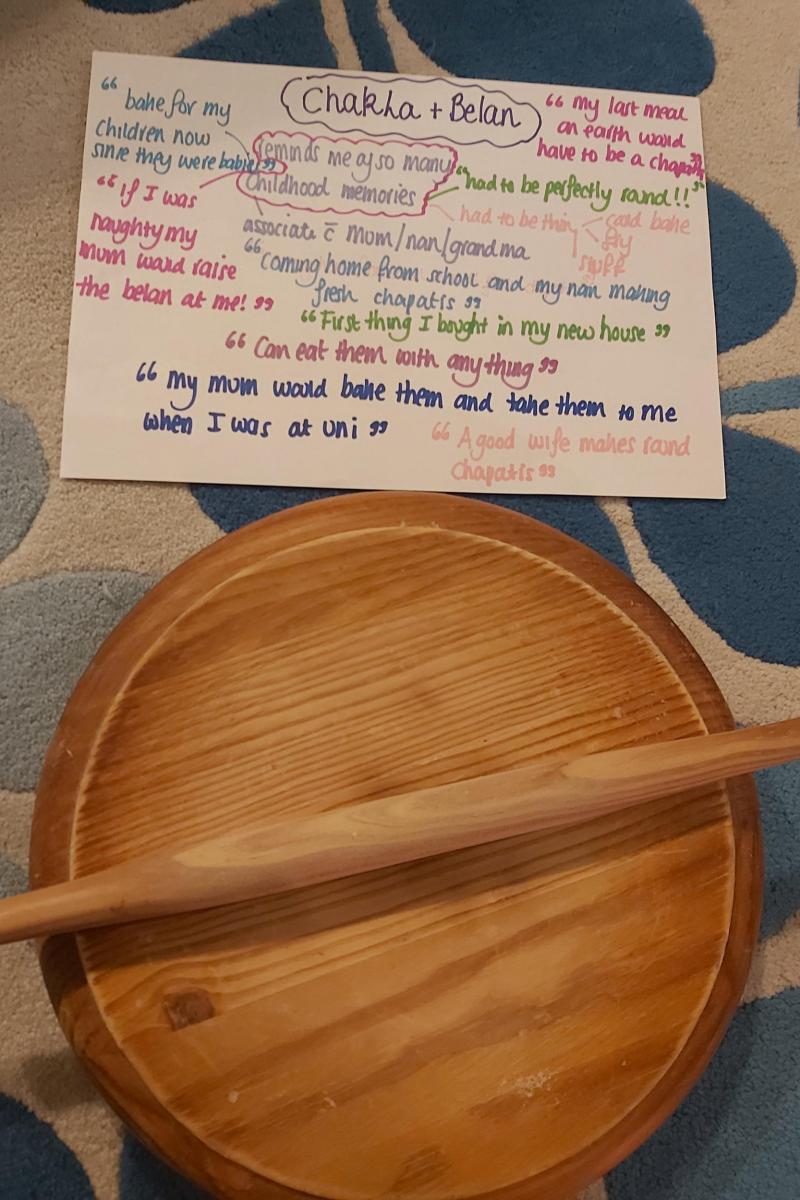 Chakla + Belan
“ bake for my
Children now
since they were babies ”
“ my last meal
on earth would
have to be a chapati ”
reminds me of so many
Childhood memories
“ had to be perfectly round!! ”
“ if I was
naughty my
mum would raise
the belan at me! ”
had to be thin
could bake
fry
stuff
associate c̄ mom/nan/grandma
“ Coming home from school and my nan making
fresh chapatis ”
“ First thing I bought in my new house ”
“ Can eat them with anything ”
“ my mum would bake them and take them to me
when I was at uni ”
“ A good wife makes round
chapatis ”